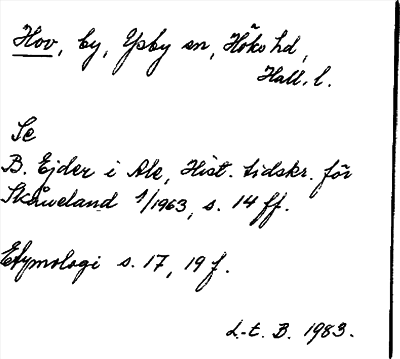 Hov, by, Ysby sn, Höks hd,
Hall. l.
Se
B. Ejder i Ale, Hist. tidskr. för
Skåneland 1/1963, s. 14 ff.
Etymologi s. 17, 19 f.
L-t. B. 1983.